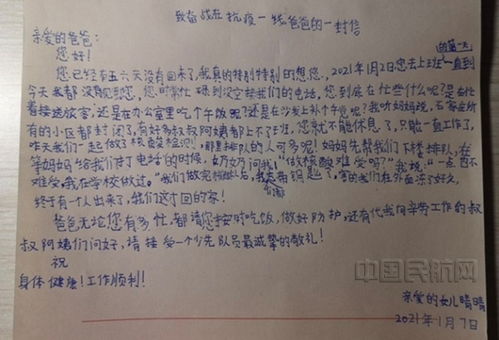 致奋战在抗疫一线爸爸的一封信
亲爱的爸爸:
您好!
的第一天
您已经有五六天没有回来了,我真的特别特别的想您。2021年1月2日您去上班 一直到
今天我都没有见到您,您时常忙 碌到没空接我们的电话,您到底在忙些什么呢?是在忙
着接送旅客,还是在办公室里吃个午饭呢?还是在沙发上补个午觉呢?我听妈妈说,石家庄所
有的小区都封闭了,有许多叔叔阿姨都上不了班,您就不能休息了,只能一直工作了,
昨天我们一起做了核酸检测!哪里排队的人可多呢!妈妈先帮我们下楼排队,在
等妈妈给我们打电话的时候,奶奶问我:"做核酸难受吗?"我说:"一点四不
难受,我在学校做过。"我们做完核酸后,我 带钥匙了,害的我们在外面冻了好久,
忘
终于有一个人出来了,我们这才回的家!
爸爸无论您有多忙,都请您按时吃饭,做好防护,还有代我向辛劳工作的叔
叔阿姨们问好,请接受一个少先队员最诚挚的敬礼!
祝
身体健康!工作顺利!
中国民航网
亲爱的女儿晴晴
2021年1月7日